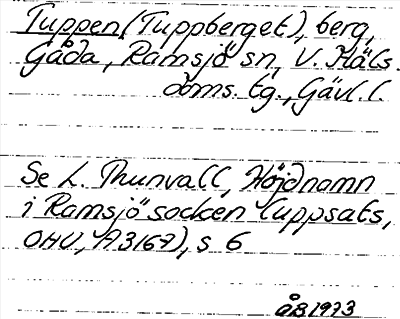 Tuppen (Tuppberget), berg,
Gåda, Ramsjö sn, V. Häls.
doms. tg., Gävl. l.
Se L. Thunvall, Höjdnamn
i Ramsjö socken (uppsats,
OHU, A3167), s 6
ÅB 1973